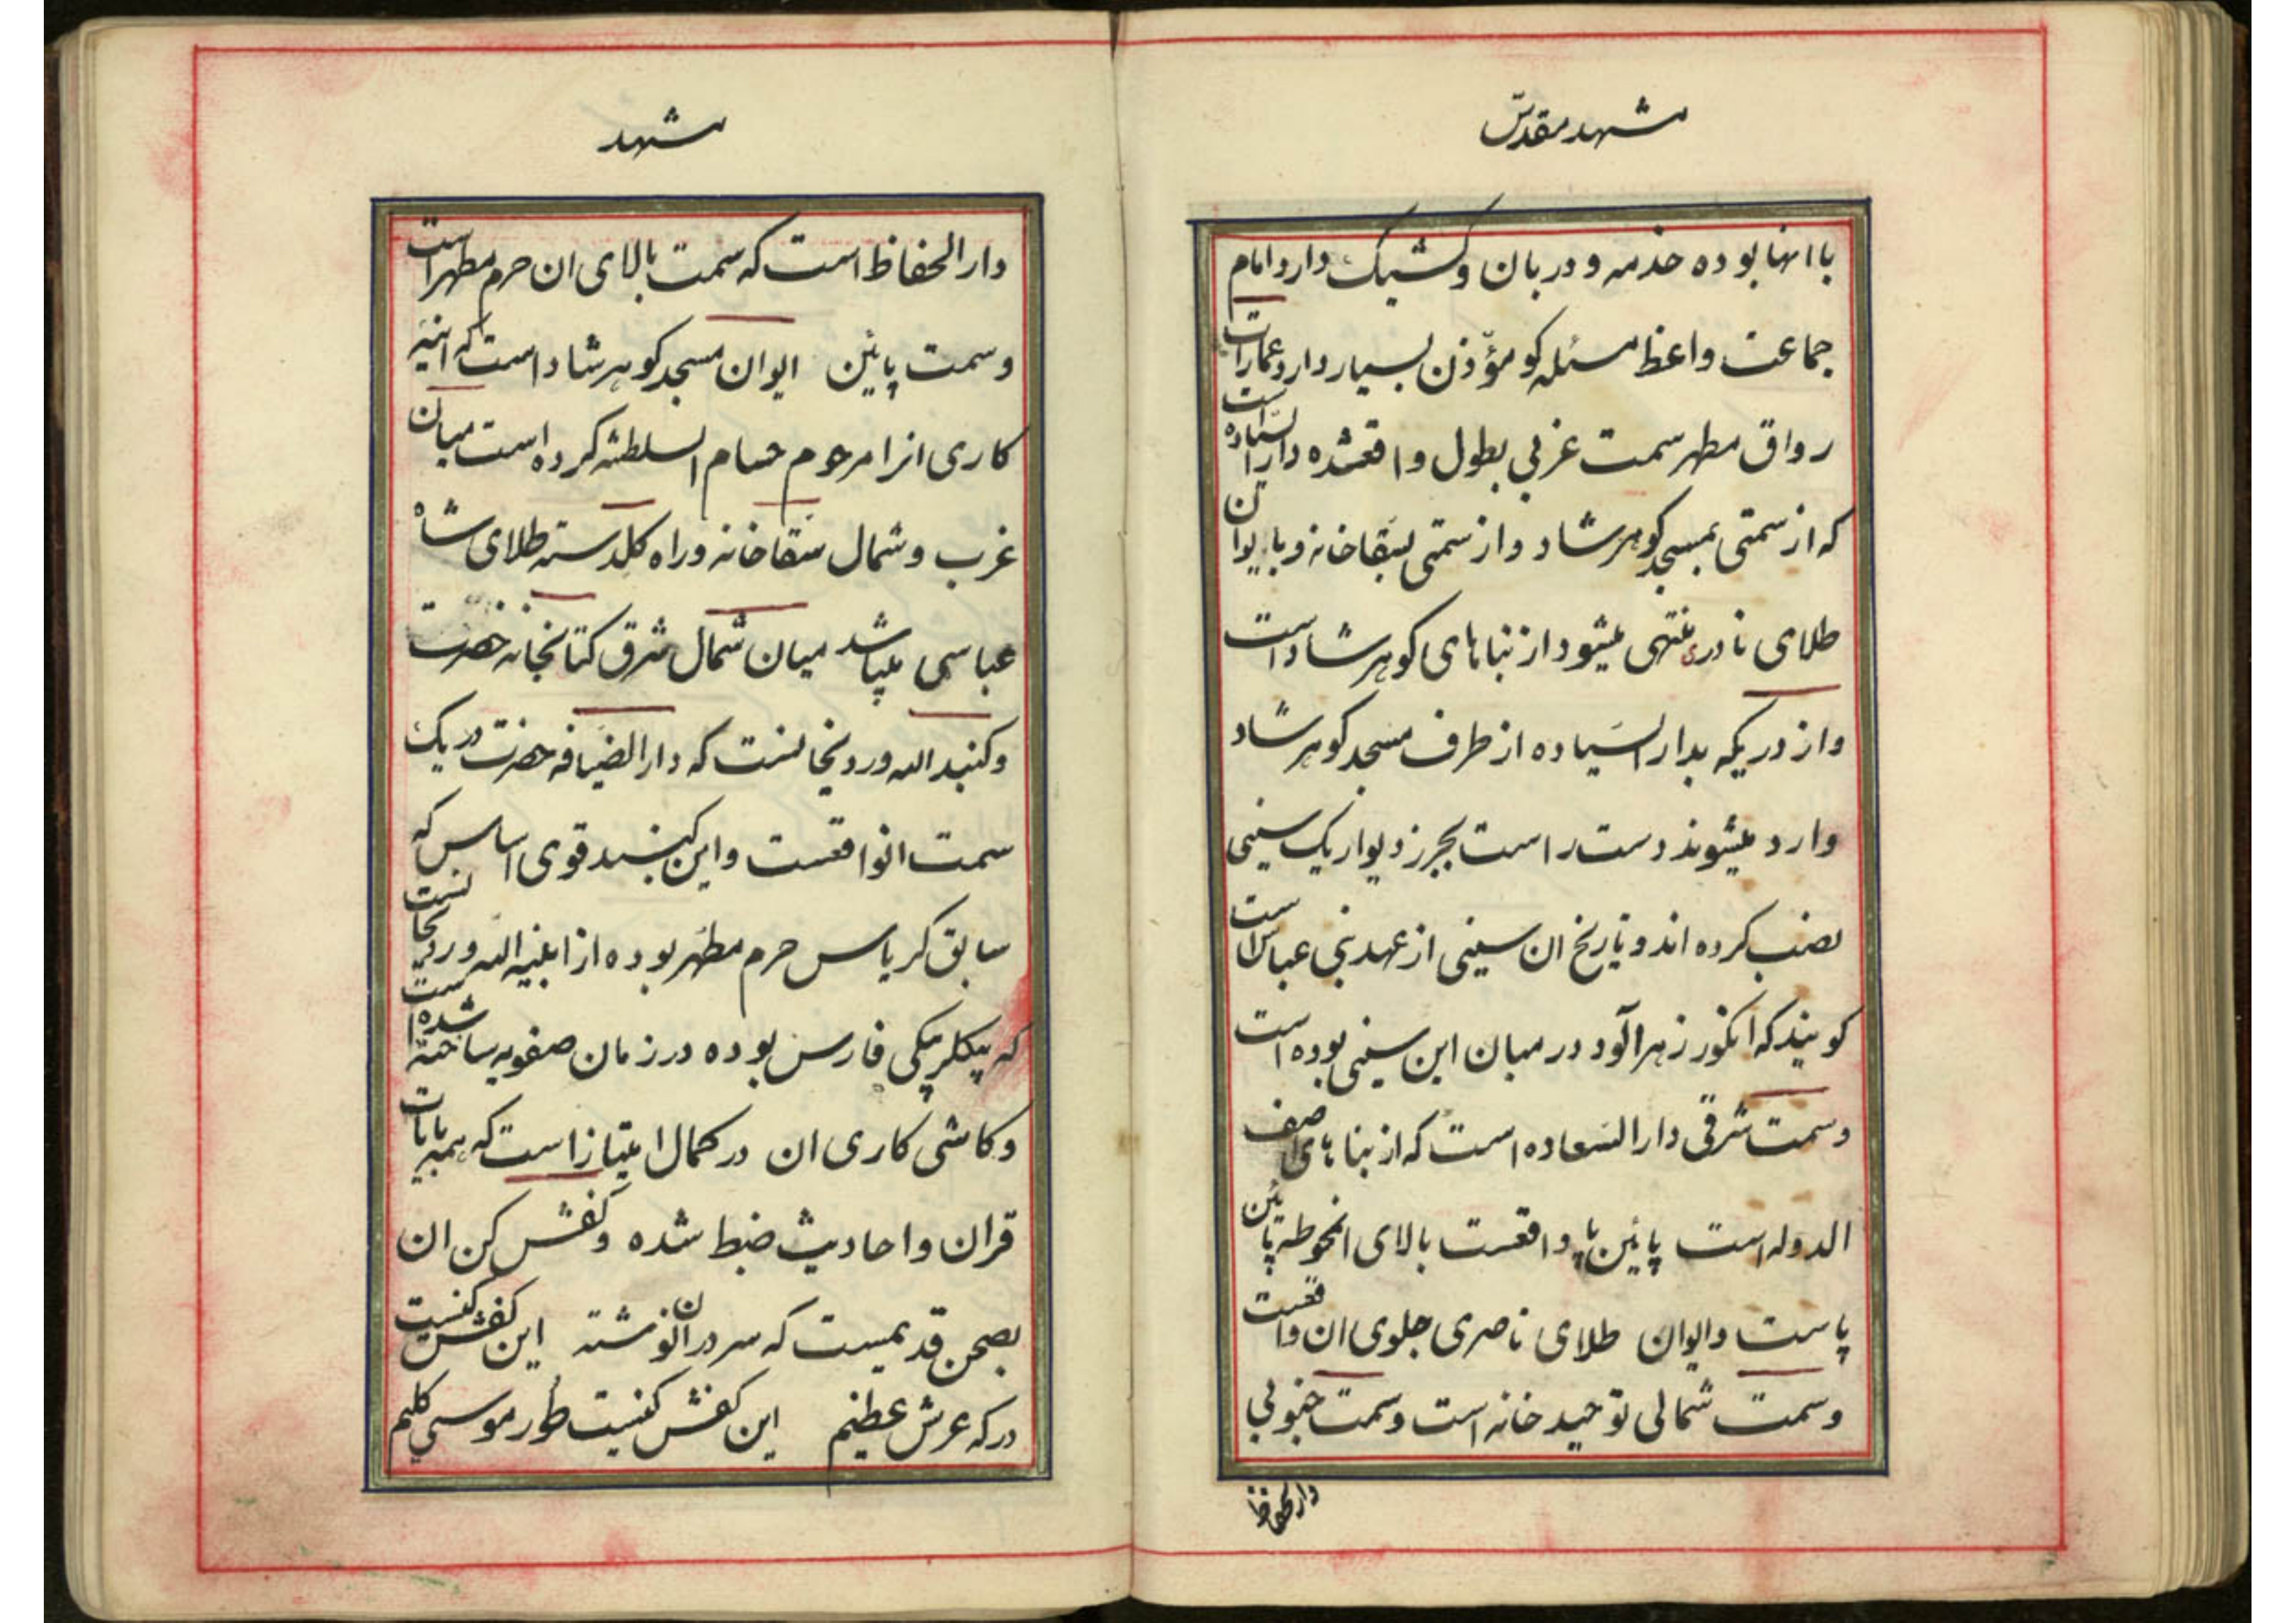 مشهد مقدّس
با انها بوده خدمه و دربان و کشیک دارد امام
جماعت واعظ مسئله کو مؤذن بسیار دارد عمارات
رواق مطهر سمت غربی بطول واقعشده دار السّیاده است
که از سمتی بمسجد کوهرشاد و از سمتی بسقاخانه و بایوان
طلای نادری منتهی میشود از بناهای کوهرشاد است
و از دریکه بدار السیاده از طرف مسجد کوهرشاد
وارد میشوند دست راست بجرز دیوار یک سینی
نصب کرده اند و تاریخ ان سینی از عهد بنی عباس است
کویند که انکور زهرآلود در میان این سینی بوده است
و سمت شرقی دار السعاده است که از بناهای اصف
الدوله است پائین پا واقعست بالای انمحوطه پائین
پاست و ایوان طلای ناصری جلوی ان واقعست
و سمت شمالی توحید خانه است و سمت جنوبی
دار الحفاظ
مشهد
دار الحفاظ است که سمت بالای ان حرم مطهر است
و سمت پائین ایوان مسجد کوهرشاد است که اینه
کاری انرا مرحوم حسام السلطنه کرده است میان
غرب و شمال سقاخانه و راه کلدسته طلای شاه
عباسی میباشد میان شمال شرق کتابخانه حضرت
و کنبد الله وردیخانست که دار الضیافه حضرت در یک
سمت انواقعست و این کنبد قوی اساس که
سابق کریاس حرم مطهر بوده از ابنیه الله وردیخانست
که بیکلربیکی فارس بوده در زمان صفویه ساخته شده است
و کاشی کاری ان در کمال امتیاز است که همه بایات
قران و احادیث ضبط شده و کفش کن ان
بصحن قدیمست که سر در ان نوشته این کفش کنیست
درکه عرش عظیم این کفش کنیست طور موسی کلیم